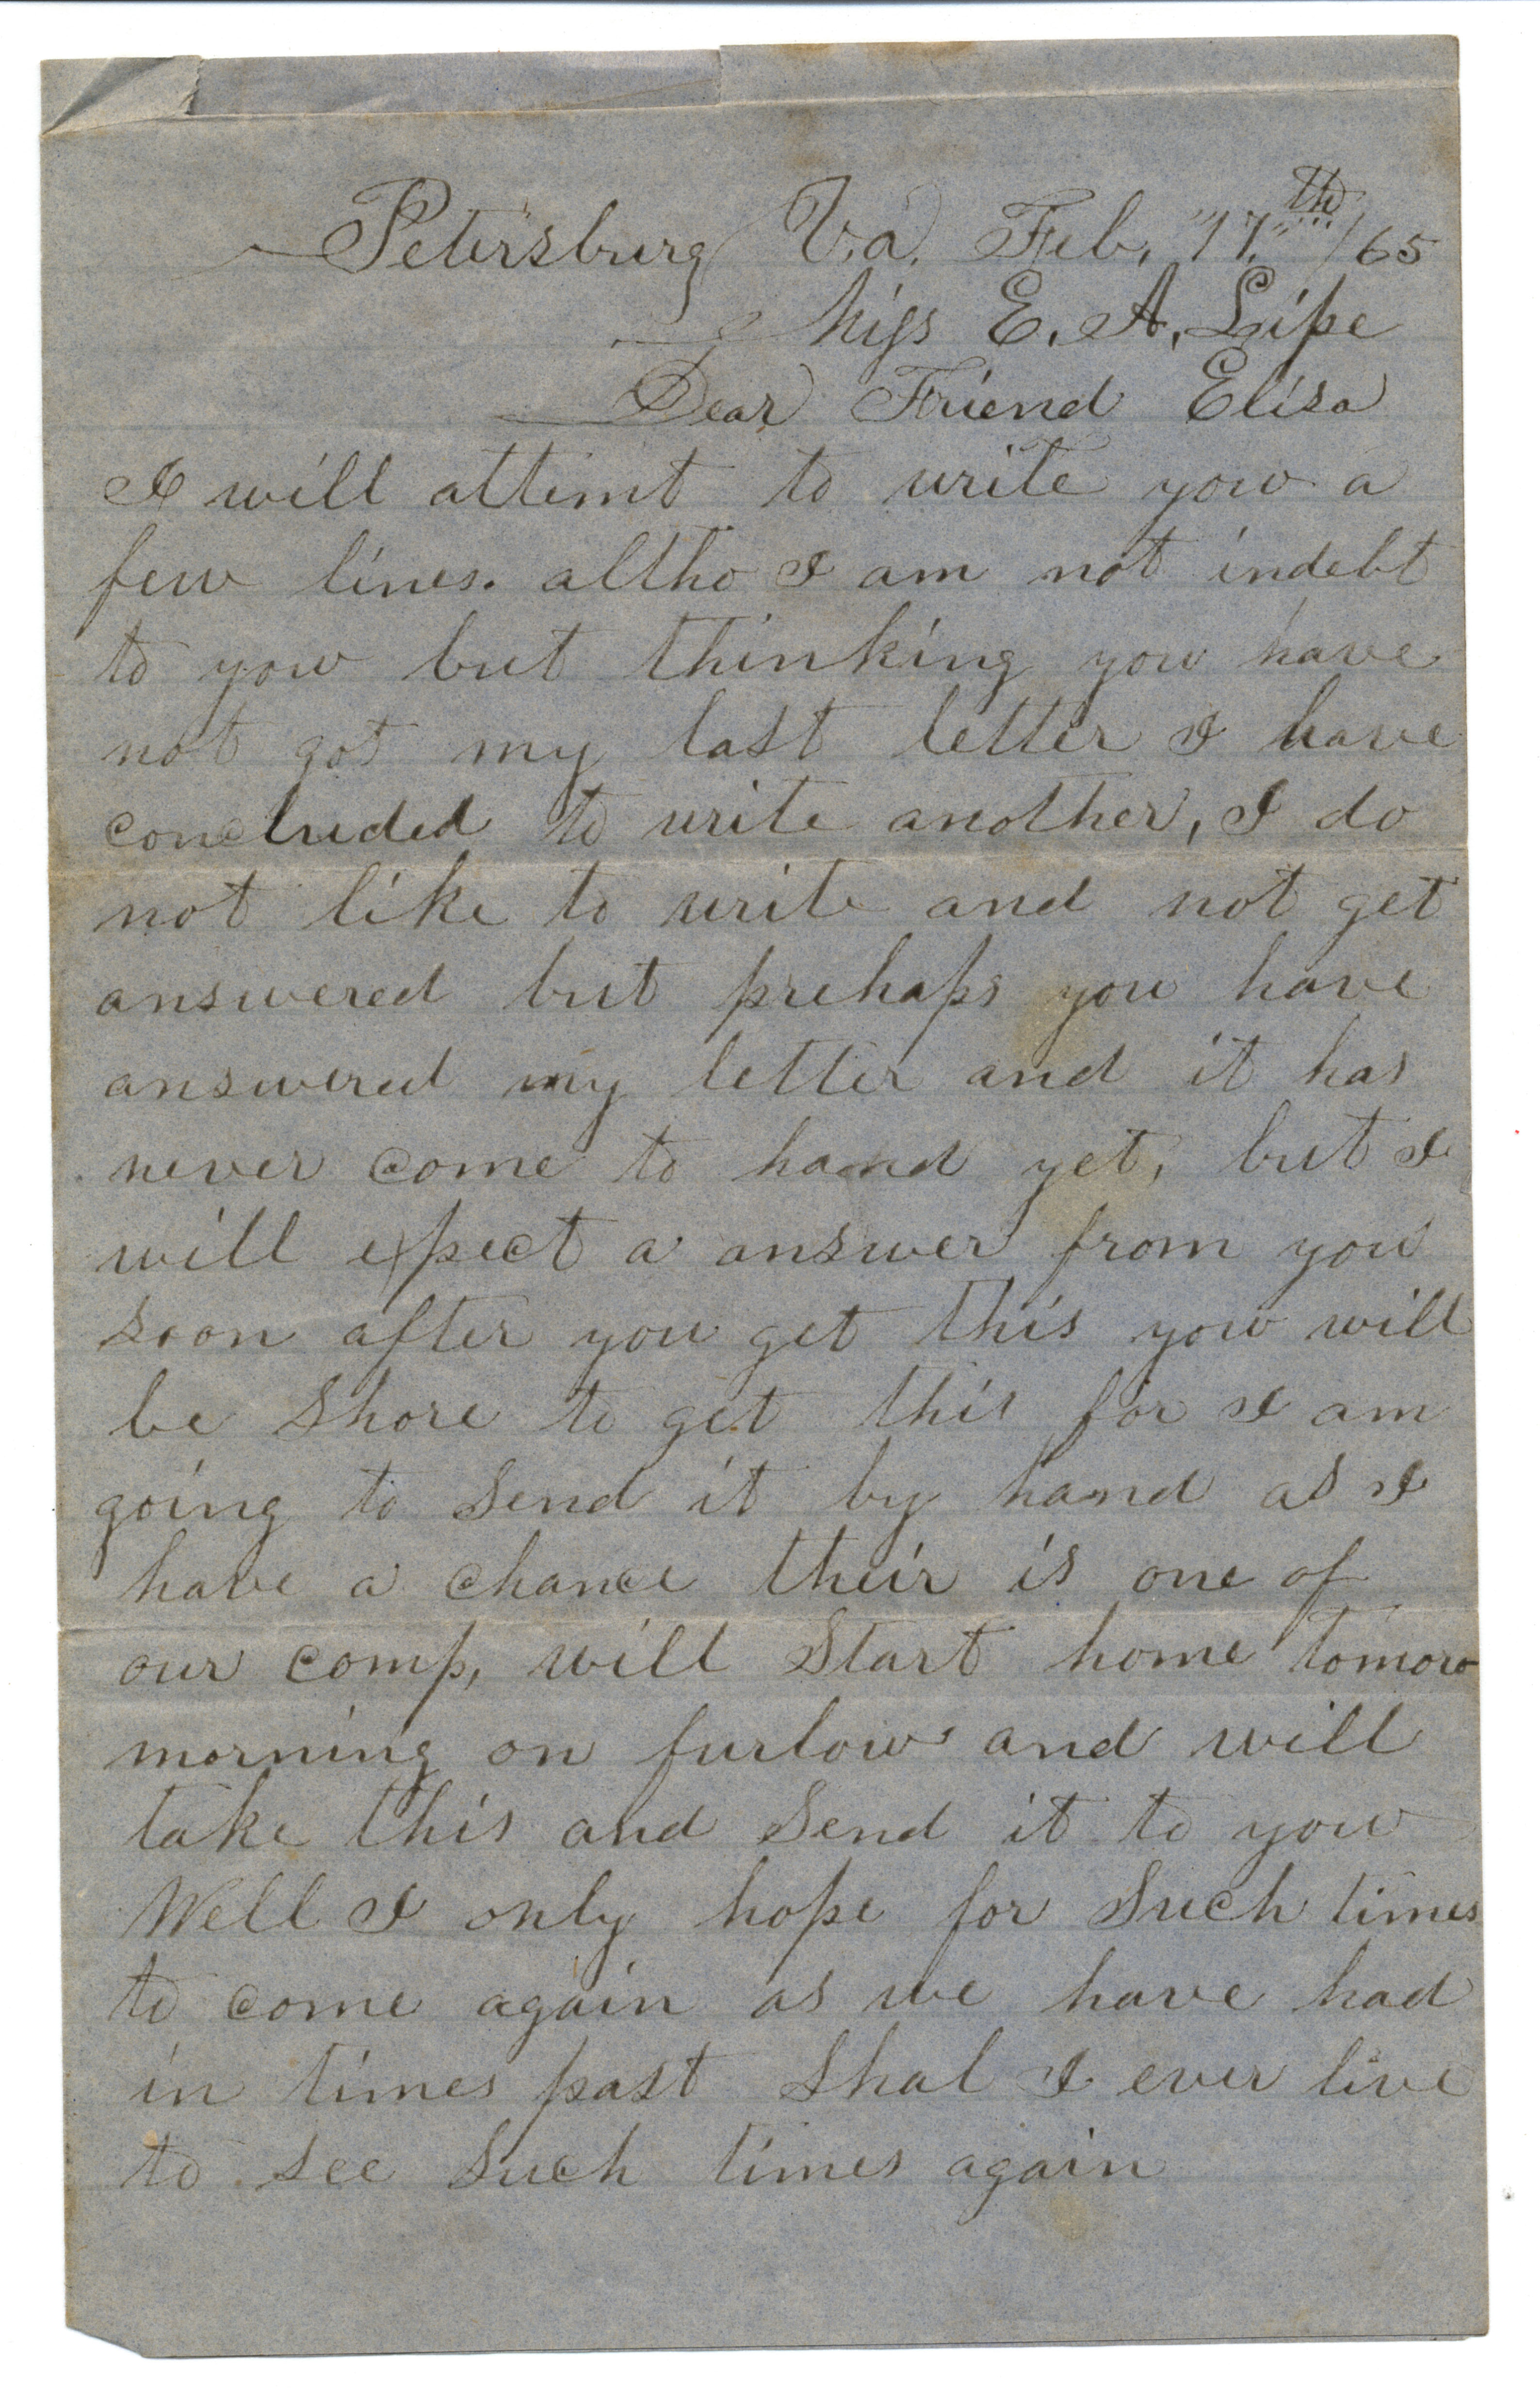 Petersburg Va. Feb, "17."th /65
Miss E. A, Lipe
Dear Friend Elisa
I will attemt to write you a
few lines. altho I am not indebt
to you but thinking you have
not got my last letter I have
concluded to write another, I do
not like to write and not get
answered but prehaps you have
answered my letter and it has
never come to hand yet, but I
will expect a answer from you
soon after you get this you will
be Shore to get this for I am
going to Send it by hand as I
have a chance their is one of
our comp, will Start home tomoro
morning on furlow and will
take this and Send it to you
Well I only hope for Such times
to come again as we have had
in times past Shal I ever live
to see Such times again